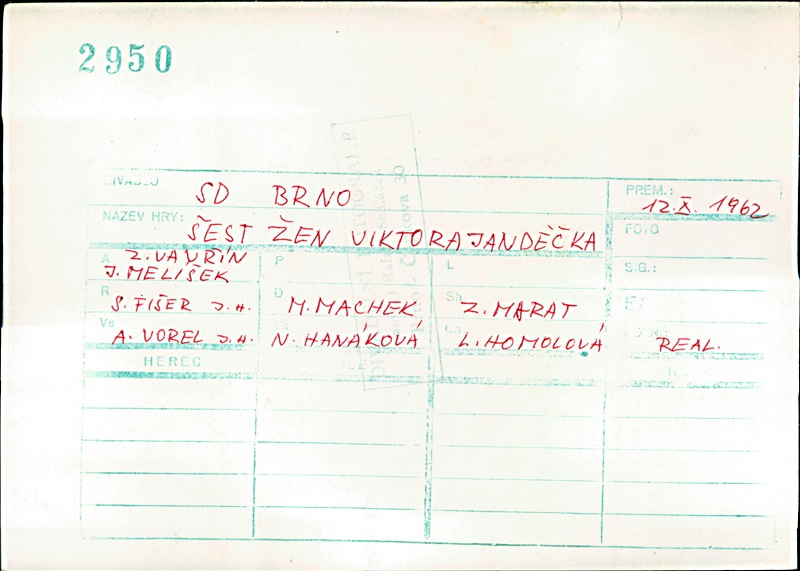 2950
DIVADLO SD BRNO
PREM.: 12.X. 1962
NÁZEV HRY: ŠEST ŽEN VIKTORA JANDĚČKA
FOTO
A Z. VAVŘÍN
J. MELÍŠEK
P
L
S.G.:
R S. FIŠER J.H.
D M. MACHEK
Sb Z. MARAT
Vs A. VOREL J.H.
N. HANÁKOVÁ
Ch L. HOMOLOVÁ
REAL.
HEREC